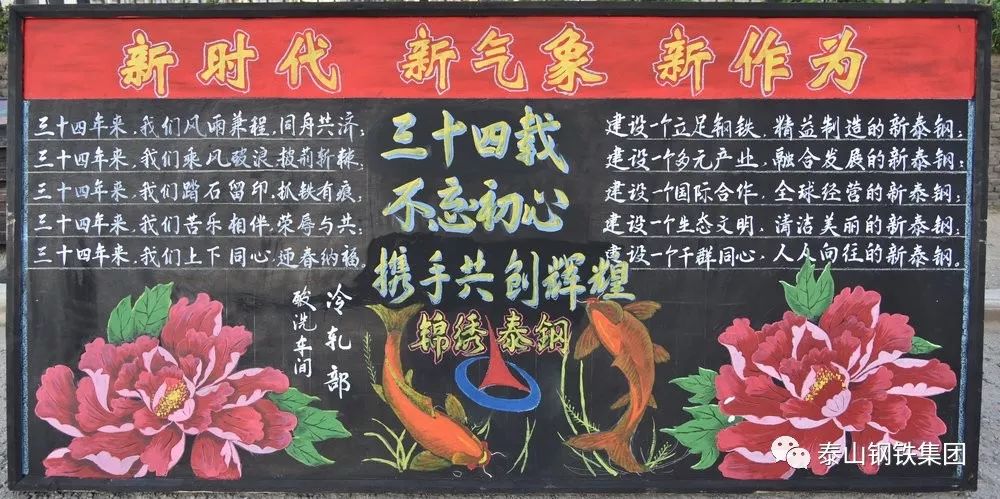 新时代 新气象 新作为
三十四年来,我们风雨兼程,同舟共济;
三十四年来,我们乘风破浪,披荆斩棘;
三十四年来,我们踏石留印,抓铁有痕;
三十四年来,我们苦乐相伴,荣辱与共;
三十四年来,我们上下同心,迎春纳福。
三十四载
不忘初心
携手共创辉煌
锦绣泰钢
建设一个立足钢铁,精益制造的新泰钢;
建设一个多元产业,融合发展的新泰钢;
建设一个国际合作,全球经营的新泰钢;
建设一个生态文明,清洁美丽的新泰钢;
建设一个干群同心,人人向往的新泰钢。
冷轧部
酸洗车间
泰山钢铁集团